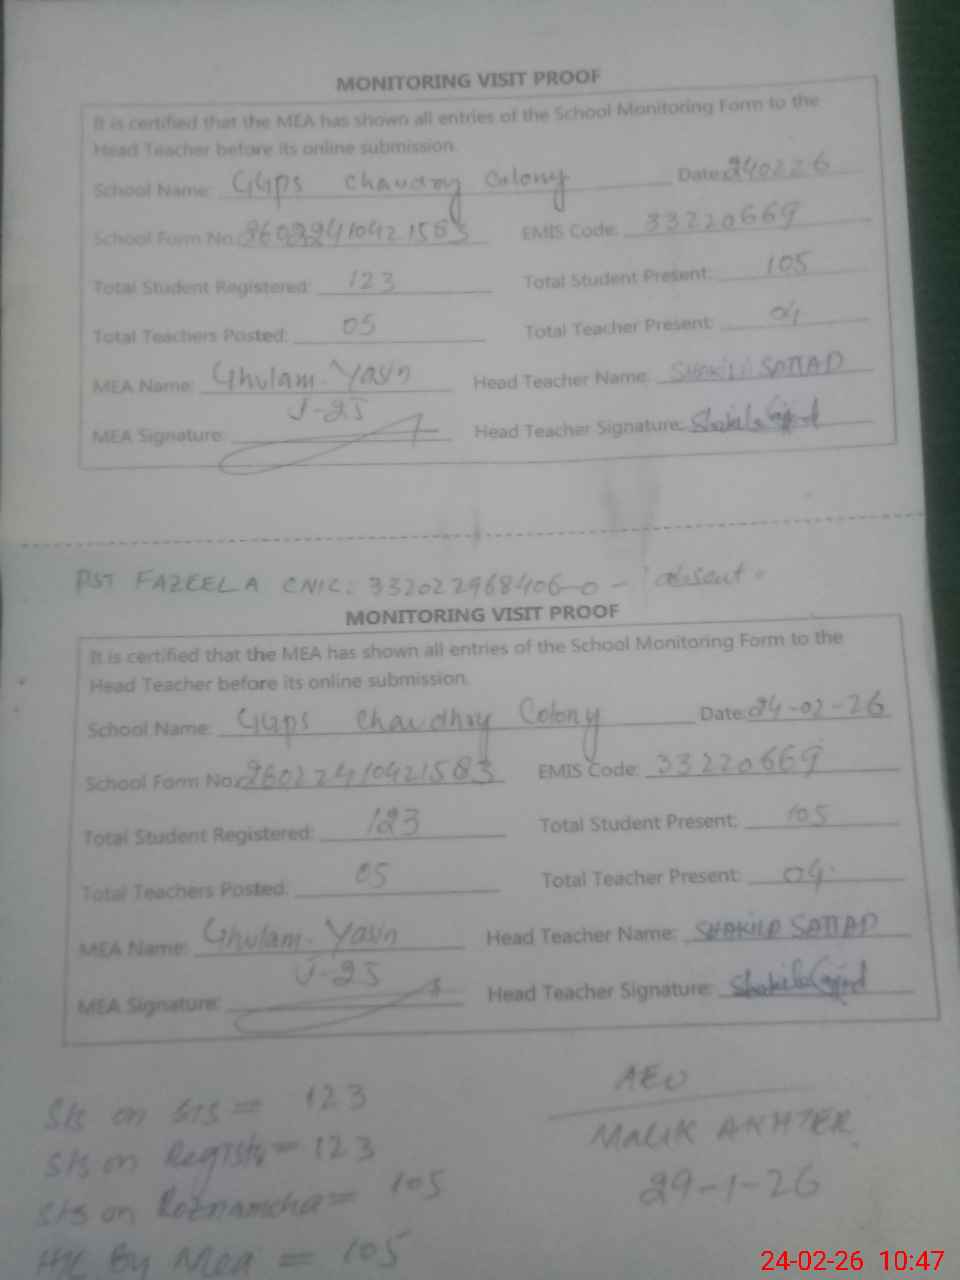 MONITORING VISIT PROOF
It is certified that the MEA has shown all entries of the School Monitoring Form to the
Head Teacher before its online submission.
School Name: GGPS Chaudry Colony Date: 240226
School Form No. EMIS Code: 33220669
Total Student Registered: 123 Total Student Present: 105
Total Teachers Posted: 05 Total Teacher Present: 04
MEA Name: Ghulam Yasin Head Teacher Name: SHAKILA SAJJAD
J-25
MEA Signature: Head Teacher Signature: Shakila Sajjad
PST FAZEELA CNIC: 3320229684060 - absent
MONITORING VISIT PROOF
It is certified that the MEA has shown all entries of the School Monitoring Form to the
Head Teacher before its online submission.
School Name: GGPS Chaudhry Colony Date: 24-02-26
School Form No. 26022410421583 EMIS Code: 33220669
Total Student Registered: 123 Total Student Present: 105
Total Teachers Posted: 05 Total Teacher Present: 04
MEA Name: Ghulam Yasin Head Teacher Name: SHAKILA SAJJAD
J-25
MEA Signature: Head Teacher Signature: Shakila Sajjad
AEO
Sts on SIS = 123
MALIK AKHTER
Sts on Register = 123
29-1-26
Sts on Roznamcha = 105
H/C By Mea = 105
24-02-26 10:47